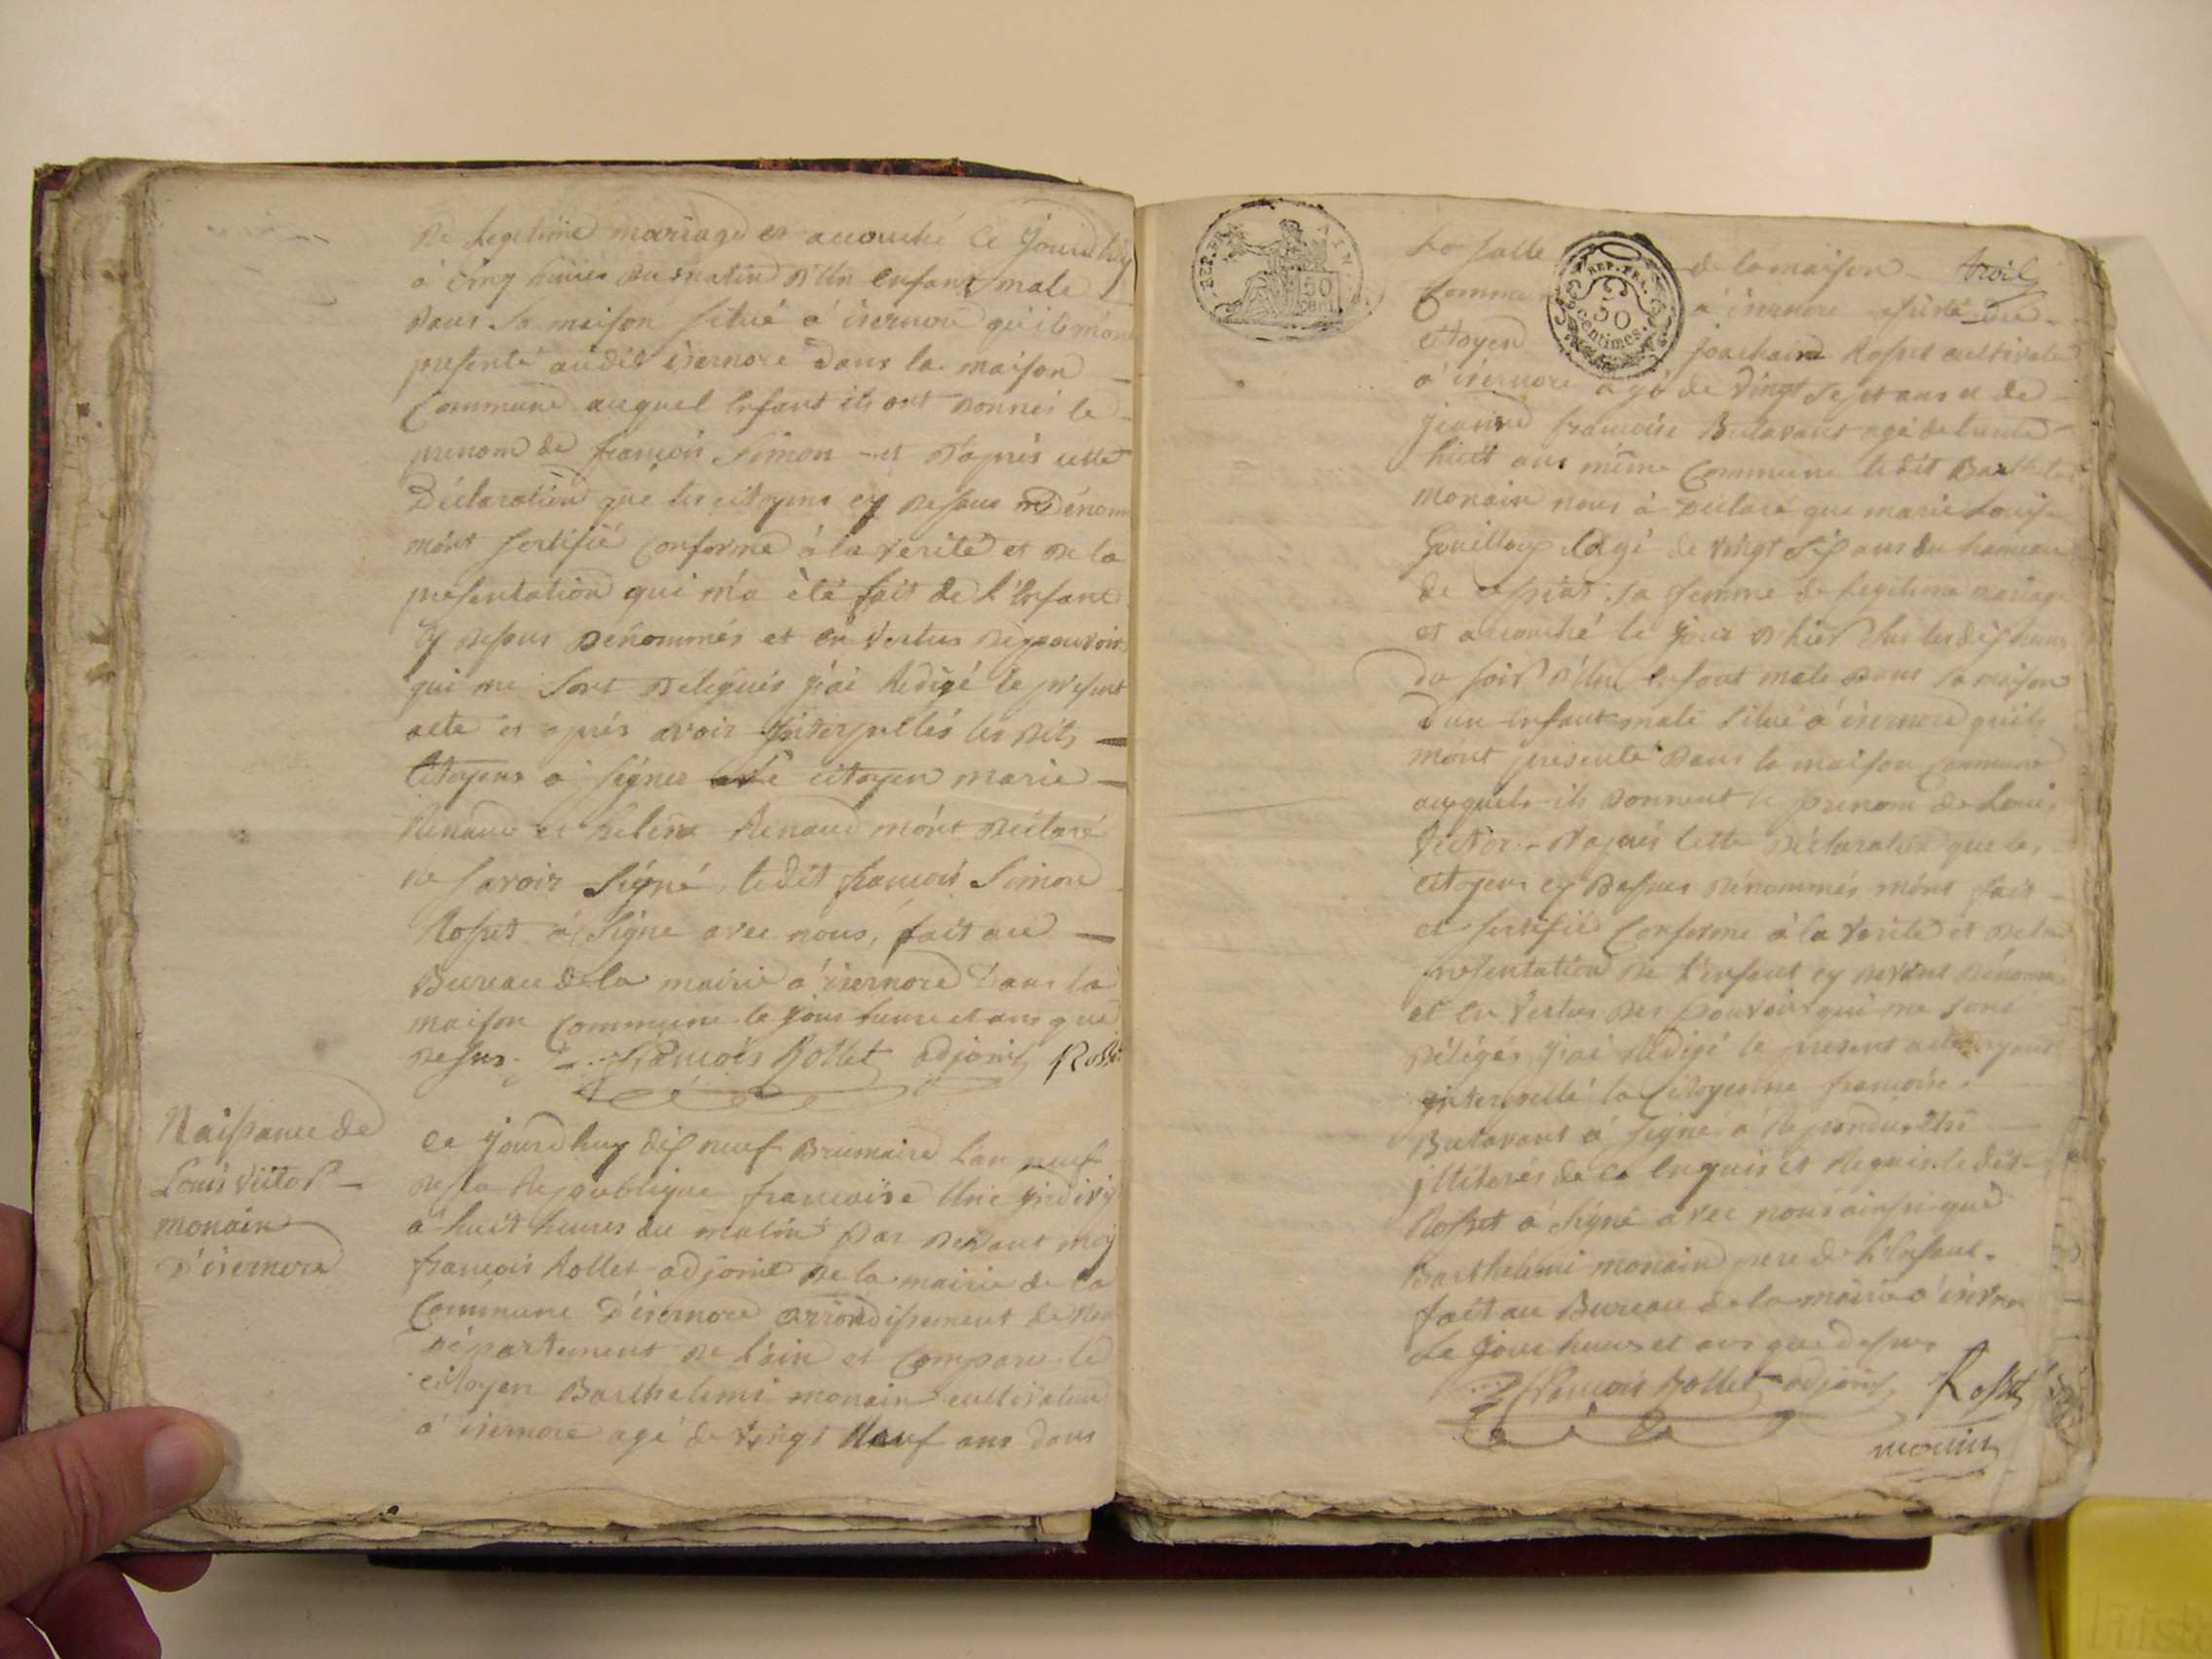 De Legetime mariage et accouché Ce Jourdhuy
à Cinq heures du matin D'Un enfant male
Dans Sa maison situé à isernore qu'ils m'on
presenté audit isernore Dans la maison
Commune auquel Enfant ils ont Donnés le
prenom de françois Simon et D'aprés cette
Déclaration que les citoyens cy Dessus Dénom
m'ont sertifié Conforme à la verité et De la
presentation qui m'a été fait de L'Enfant
cy Dessus Dénommés et en Vertus Des pouvoirs
qui me Sont Délégués j'ai Redigé le présent
acte et aprés avoir Interpellés les Dits
Citoyens à Signer citoyen marie
Renaud et helene Renaud m'ont Déclaré
ne savoir Signé, ledit françois Simon
Rosset à Signe avec nous, fait au
Bureau de la mairie à isernore Dans la
maison Commune le jour heure et ans que
Dessus. françois Rollet adjoint Ross
Naissance de
Louis Victor
monain
D'isernore
Ce jourdhuy dis neuf Brumaire L'an neuf
De la Republique francaise Une indivis
à huit heures du matin Par Devant moy
françois Rollet adjoint De la mairie de la
Commune D'isernore arrondissement de Nan
Département De L'ain et Comparu le
citoyen Barthelemi monain cultivateur
à isernore agé de Vingt Neuf ans Dans
REP. FRA. AIN.
50
cent.
La Salle de la maison
REP. FRA.
50
centimes.
Commune à isernore assisté Du
citoyen joachain Rosset cultivate
à isernore agé de Vingt Sept ans et de
Jeanne francoise Butavant agé de trente
huit ans même Commune ledit Barthele
Monain nous à Déclaré que marie Louise
Gouilloux agé de vingt Sis ans du hameau
de sa femme de Legitime mariage
et accouché le jour D'hier Sur les dis heures
Du soir D'Un Enfant male Dans Sa maison
D'un Enfant male Situé à isernore qu'ils
m'ont presenté Dans la maison Commune
auxquels ils Donnent le prenom de Louis
Victor. D'aprés cette Déclaration que les
citoyens cy Dessus Dénommés m'ont fait
et sertifié Conforme à la Verité et De la
presentation De L'enfant cy Devant Dénomm
et en Vertus Des pouvoirs qui me sont
Délégés, j'ai Rédigé le present acte ayant
Interpellé la Citoyenne francoise
Butavant à Signé à Repondu Etre
illiterés de Ce Enquis et Requis ledit
Rosset à Signé avec nous ainsi que
Barthelemi monain pere de L'Enfant.
fait au Bureau de la mairie à isernore
Le Jour heure et ans que Dessus
françois Rollet adjoint Rosset
monin